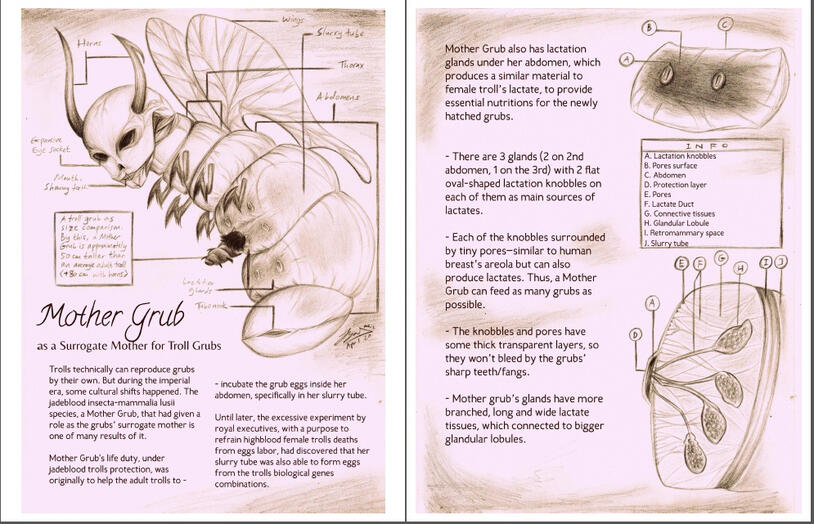 Horns
Wings
Slurry tube
Thorax
Abdomens
Expansive
Eye socket
Mouth,
Showing teeth
A troll grub as
size comparison.
By this, a Mother
Grub is approximately
50 cm taller than
an average adult troll
(+80 cm with horns)
Lactation
glands
Mother Grub
as a Surrogate Mother for Troll Grubs
Trolls technically can reproduce grubs
by their own. But during the imperial
era, some cultural shifts happened. The
jadeblood insecta-mammalia lusii
species, a Mother Grub, that had given a
role as the grubs' surrogate mother is
one of many results of it.
Mother Grub's life duty, under
jadeblood trolls protection, was
originally to help the adult trolls to -
- incubate the grub eggs inside her
abdomen, specifically in her slurry tube.
Until later, the excessive experiment by
royal executives, with a purpose to
refrain highblood female trolls deaths
from eggs labor, had discovered that her
slurry tube was also able to form eggs
from the trolls biological genes
combinations.
Mother Grub also has lactation
glands under her abdomen, which
produces a similar material to
female troll's lactate, to provide
essential nutritions for the newly
hatched grubs.
- There are 3 glands (2 on 2nd
abdomen, 1 on the 3rd) with 2 flat
oval-shaped lactation knobbles on
each of them as main sources of
lactates.
- Each of the knobbles surrounded
by tiny pores—similar to human
breast's areola but can also
produce lactates. Thus, a Mother
Grub can feed as many grubs as
possible.
- The knobbles and pores have
some thick transparent layers, so
they won't bleed by the grubs'
sharp teeth/fangs.
- Mother grub's glands have more
branched, long and wide lactate
tissues, which connected to bigger
glandular lobules.
B
C
A
INFO
A. Lactation knobbles
B. Pores surface
C. Abdomen
D. Protection layer
E. Pores
F. Lactate Duct
G. Connective tissues
H. Glandular Lobule
I. Retromammary space
J. Slurry tube
E
F
G
H
I
J
A
D